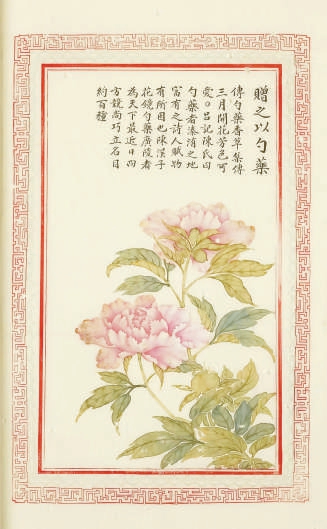 贈之以勺藥
傳勺藥香草集傳
三月開花芳色可
愛○呂記陳氏曰
勺藥者溱洧之地
富有之詩人賦物
有所因也陳淏子
花鏡勺藥廣陵者
為天下最近日四
方競尚巧立名目
約百種